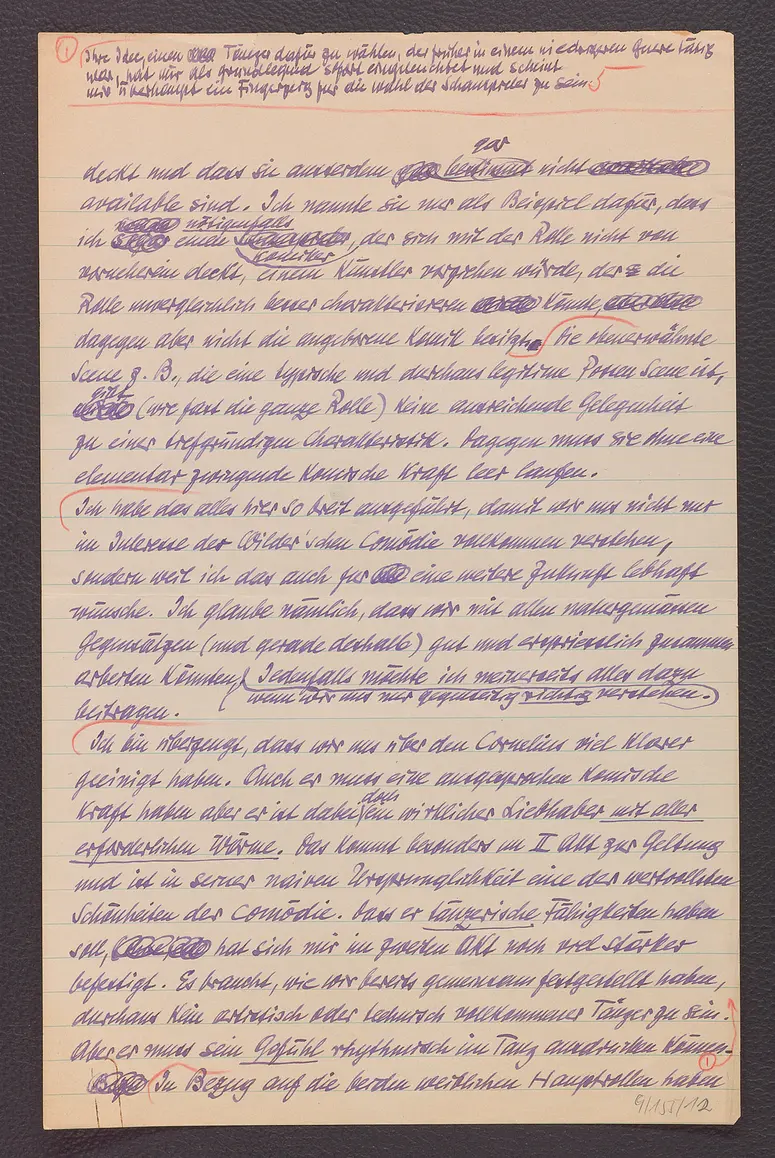 ① Ihre Idee, einen Tänzer dafür zu wählen, der früher in einem niedrigeren Genre tätig
war, hat mir als grundlegend sofort eingeleuchtet und scheint
mir überhaupt ein Fingerzeig für die Wahl der Schauspieler zu sein. 5
gar
deckt und dass sie ausserdem bestimmt nicht
available sind. Ich nannte sie nur als Beispiel dafür, dass
nötigenfalls
ich einen Komiker, der sich mit der Rolle nicht von
vorneherein deckt, einem Künstler vorziehen würde, der die
Rolle unvergleichlich besser charakterisieren könnte,
dagegen aber nicht die angeborene Komik besitzt. Die obenerwähnte
Scene z. B., die eine typische und durchaus legitime Possen Scene ist,
gibt
(wie fast die ganze Rolle) keine ausreichende Gelegenheit
zu einer tiefgründigen Charakteristik. Dagegen muss sie ohne eine
elementar zwingende komische Kraft leer laufen.
Ich habe das alles hier so breit ausgeführt, damit wir uns nicht nur
im Interesse der Wilder'schen Comödie vollkommen verstehen,
sondern weil ich das auch für eine weitere Zukunft lebhaft
wünsche. Ich glaube nämlich, dass wir mit allen naturgemässen
Gegensätzen (und gerade deshalb) gut und erspriesslich zusammen
arbeiten könnten, Jedenfalls möchte ich meinerseits alles dazu
wenn wir uns nur gegenseitig richtig verstehen.
beitragen.
Ich bin überzeugt, dass wir uns über den Cornelius viel klarer
geeinigt haben. Auch er muss eine ausgesprochen komische
doch
Kraft haben aber er ist dabei ein wirklicher Liebhaber mit aller
erforderlichen Wärme. Das kommt besonders im II Akt zur Geltung
und ist in seiner naiven Ursprünglichkeit eine der wertvollsten
Schönheiten der Comödie. Dass er tänzerische Fähigkeiten haben
soll, hat sich mir im zweiten Akt noch viel stärker
befestigt. Es braucht, wie wir bereits gemeinsam festgestellt haben,
durchaus kein artistisch oder technisch vollkommener Tänzer zu sein.
Aber er muss sein Gefühl rhythmisch im Tanz ausdrücken können.
①
In Bezug auf die beiden weiblichen Hauptrollen haben
9/155/12